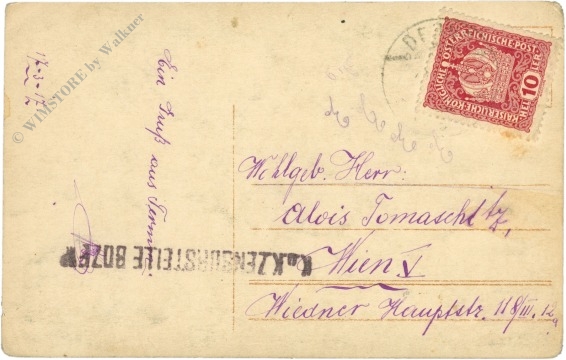 © WIMSTORE by Walkner
12-3-17
Ein Gruß aus
KAISERLICHE KÖNIGLICHE ÖSTERREICHISCHE POST
HELLER 10
K.u.K. ZENSURSTELLE BOZEN
Wohlgeb. Herrn:
Alois Tomaschtz,
Wien V
Wiedner Hauptstr. 118/III. 12a